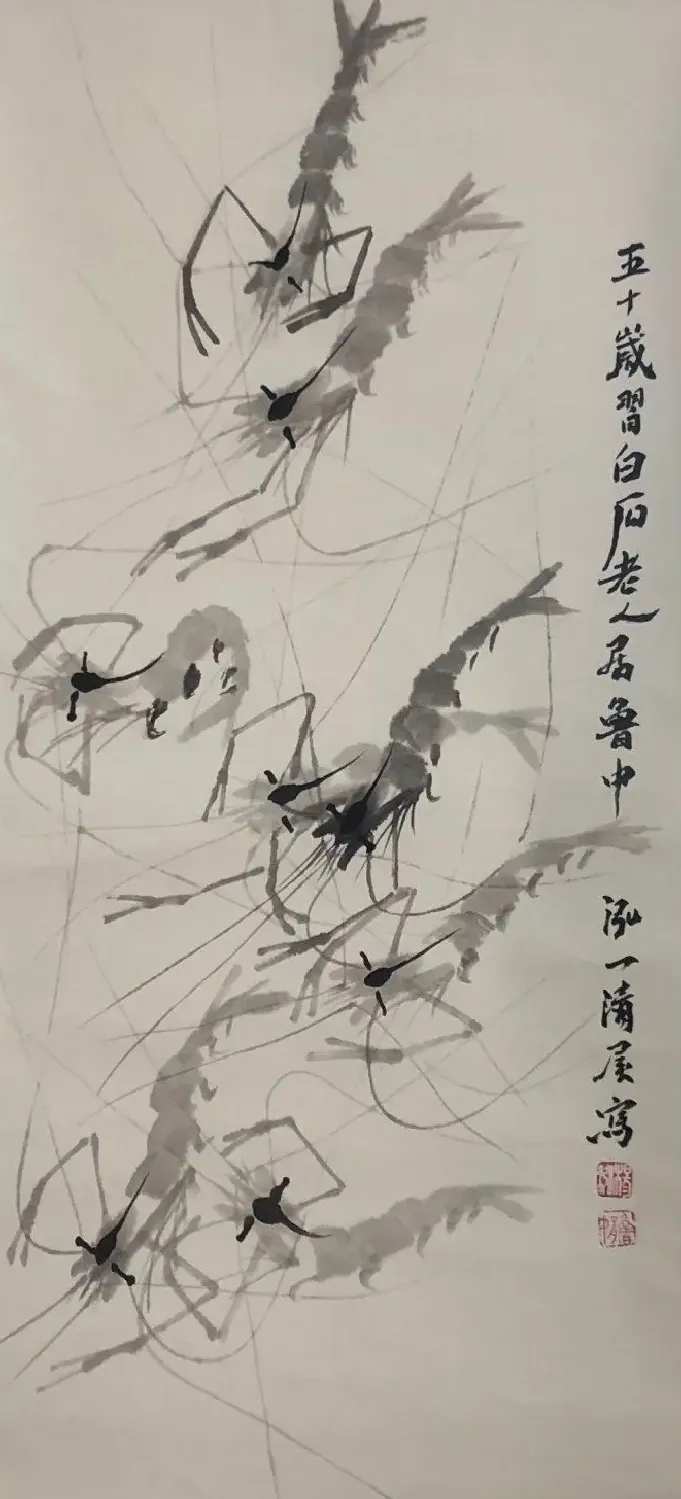 五十歲習白石老人居魯中
泓一清居寫